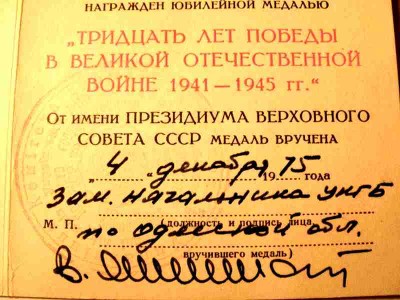 НАГРАЖДЕН ЮБИЛЕЙНОЙ МЕДАЛЬЮ
„ТРИДЦАТЬ ЛЕТ ПОБЕДЫ
В ВЕЛИКОЙ ОТЕЧЕСТВЕННОЙ
ВОЙНЕ 1941—1945 гг.“
От имени ПРЕЗИДИУМА ВЕРХОВНОГО
СОВЕТА СССР МЕДАЛЬ ВРУЧЕНА
„4“ декабря 1975 года
Зам. начальника УКГБ
М. П. (должность и подпись лица,
по Одесской обл.
вручившего медаль)
В.